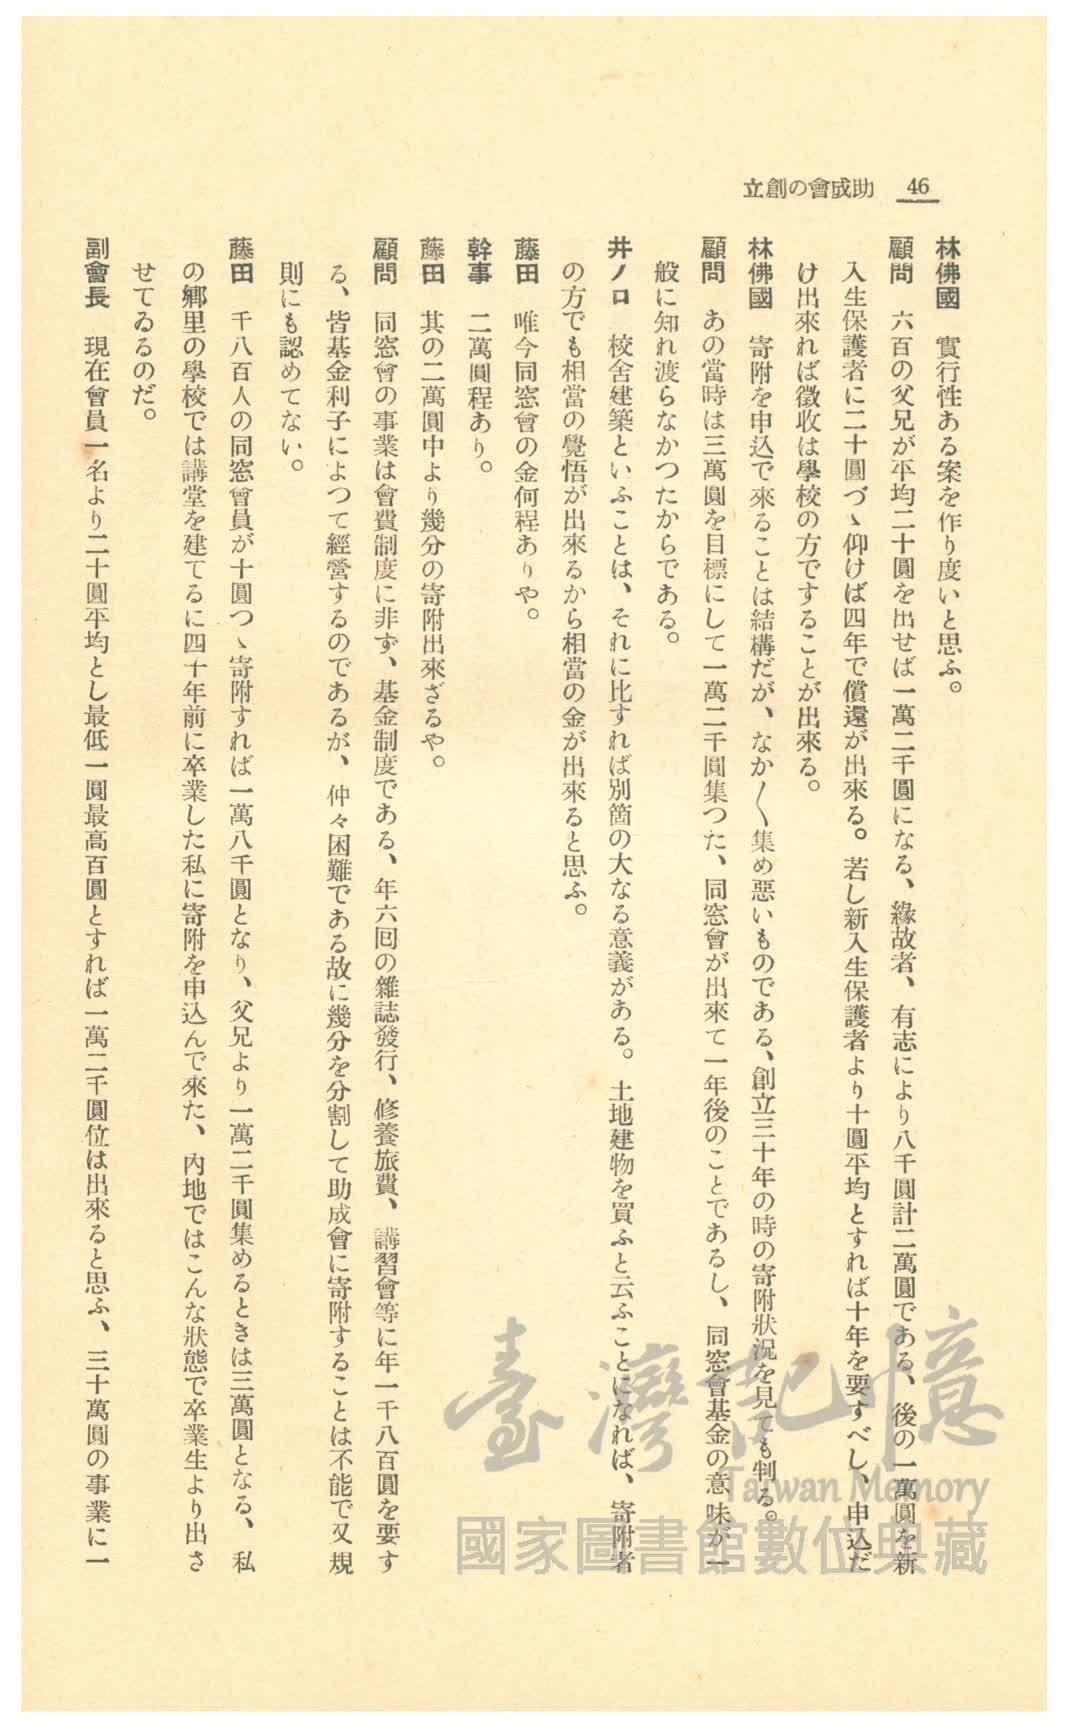 46
立創の會成助
林佛國　實行性ある案を作り度いと思ふ。
顧問　六百の父兄が平均二十圓を出せば一萬二千圓になる、緣故者、有志により八千圓計二萬圓である、後の一萬圓を新
入生保護者に二十圓づゝ仰けば四年で償還が出來る。若し新入生保護者より十圓平均とすれば十年を要すべし、申込だ
け出來れば徵收は學校の方ですることが出來る。
林佛國　寄附を申込で來ることは結構だが、なか〱集め惡いものである、創立三十年の時の寄附狀況を見ても判る。
顧問　あの當時は三萬圓を目標にして一萬二千圓集つた、同窓會が出來て一年後のことであるし、同窓會基金の意味が一
般に知れ渡らなかつたからである。
井ノ口　校舍建築といふことは、それに比すれば別箇の大なる意義がある。土地建物を買ふと云ふことになれば、寄附者
の方でも相當の覺悟が出來るから相當の金が出來ると思ふ。
藤田　唯今同窓會の金何程ありや。
幹事　二萬圓程あり。
藤田　其の二萬圓中より幾分の寄附出來ざるや。
顧問　同窓會の事業は會費制度に非ず、基金制度である、年六回の雜誌發行、修養旅費、講習會等に年一千八百圓を要す
る、皆基金利子によつて經營するのであるが、仲々困難である故に幾分を分割して助成會に寄附することは不能で又規
則にも認めてない。
藤田　千八百人の同窓會員が十圓つゝ寄附すれば一萬八千圓となり、父兄より一萬二千圓集めるときは三萬圓となる、私
の鄕里の學校では講堂を建てるに四十年前に卒業した私に寄附を申込んで來た、內地ではこんな狀態で卒業生より出さ
せてゐるのだ。
副會長　現在會員一名より二十圓平均とし最低一圓最高百圓とすれば一萬二千圓位は出來ると思ふ、三十萬圓の事業に一
臺灣記憶
Taiwan Memory
國家圖書館數位典藏